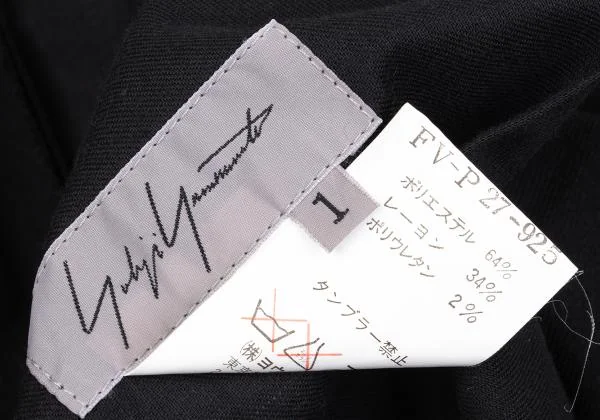 Yohji Yamamoto
1
FV-P27-925
ポリエステル 64%
レーヨン 34%
ポリウレタン 2%
タンブラー禁止
(株)ヨウ
東京